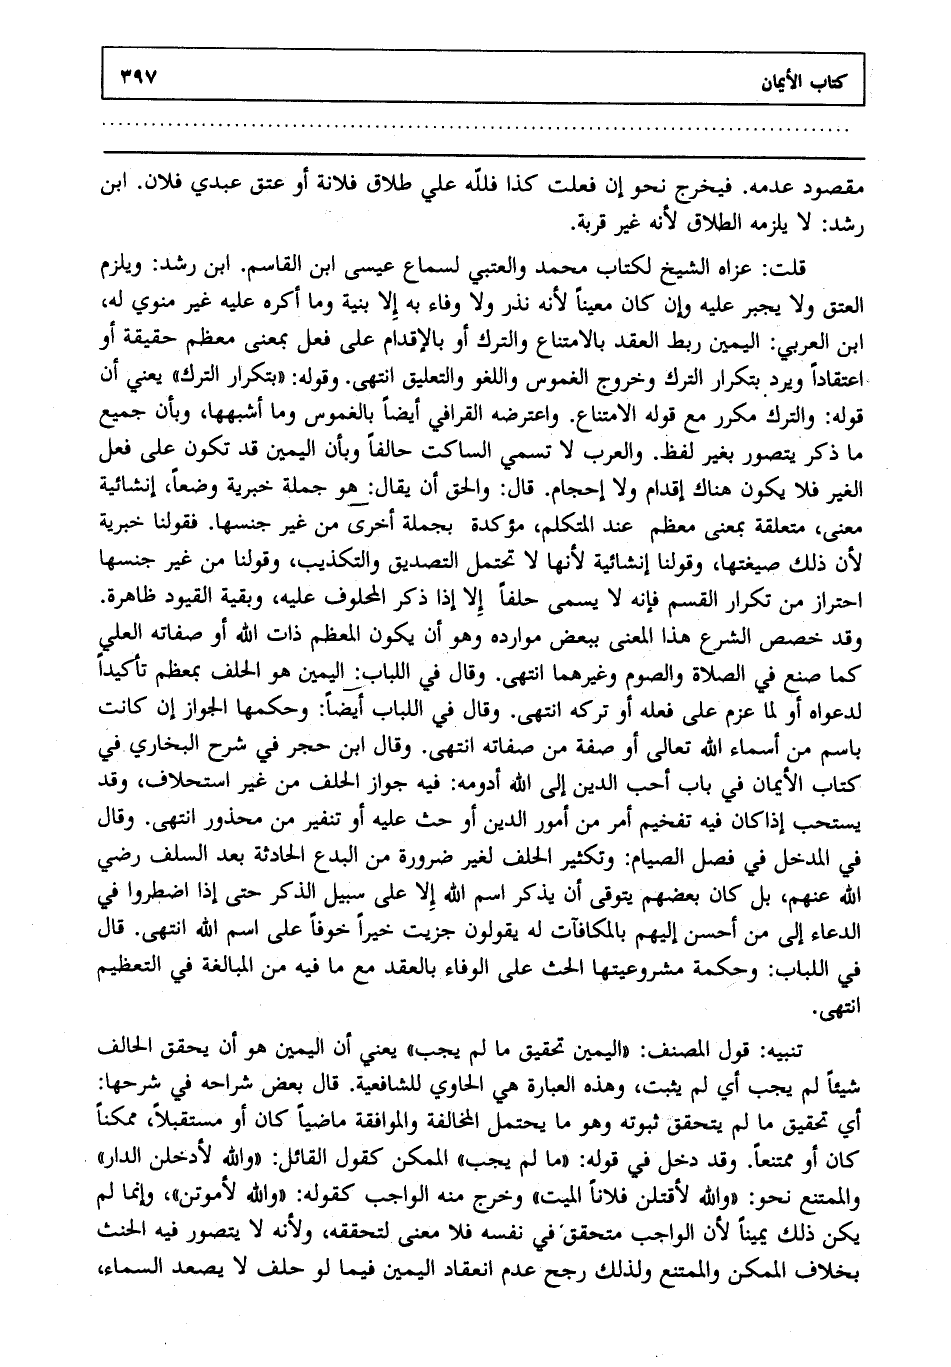 كتاب الأيمان ٣٩٧
مقصود عدمه. فيخرج نحو إن فعلت كذا فللّه علي طلاق فلانة أو عتق عبدي فلان. ابن
رشد: لا يلزمه الطلاق لأنه غير قربة.
قلت: عزاه الشيخ لكتاب محمد والعتبي لسماع عيسى ابن القاسم. ابن رشد: ويلزم
العتق ولا يجبر عليه وإن كان معيناً لأنه نذر ولا وفاء به إلا بنية وما أكره عليه غير منوي له،
ابن العربي: اليمين ربط العقد بالامتناع والترك أو بالإقدام على فعل بمعنى معظم حقيقة أو
اعتقاداً ويرد بتكرار الترك وخروج الغموس واللغو والتعليق انتهى. وقوله: «بتكرار الترك» يعني أن
قوله: والترك مكرر مع قوله الامتناع. واعترضه القرافي أيضاً بالغموس وما أشبهها، وبأن جميع
ما ذكر يتصور بغير لفظ. والعرب لا تسمي الساكت حالفاً وبأن اليمين قد تكون على فعل
الغير فلا يكون هناك إقدام ولا إحجام. قال: والحق أن يقال: هو جملة خبرية وضعاً، إنشائية
معنى، متعلقة بمعنى معظم عند المتكلم، مؤكدة بجملة أخرى من غير جنسها. فقولنا خبرية
لأن ذلك صيغتها، وقولنا إنشائية لأنها لا تحتمل التصديق والتكذيب، وقولنا من غير جنسها
احتراز من تكرار القسم فإنه لا يسمى حلفاً إلا إذا ذكر المحلوف عليه، وبقية القيود ظاهرة.
وقد خصص الشرع هذا المعنى ببعض موارده وهو أن يكون المعظم ذات الله أو صفاته العلي
كما صنع في الصلاة والصوم وغيرهما انتهى. وقال في اللباب: اليمين هو الحلف بمعظم تأكيداً
لدعواه أو لما عزم على فعله أو تركه انتهى. وقال في اللباب أيضاً: وحكمها الجواز إن كانت
باسم من أسماء الله تعالى أو صفة من صفاته انتهى. وقال ابن حجر في شرح البخاري في
كتاب الأيمان في باب أحب الدين إلى الله أدومه: فيه جواز الحلف من غير استحلاف، وقد
يستحب إذاكان فيه تفخيم أمر من أمور الدين أو حث عليه أو تنفير من محذور انتهى. وقال
في المدخل في فصل الصيام: وتكثير الحلف لغير ضرورة من البدع الحادثة بعد السلف رضي
الله عنهم، بل كان بعضهم يتوقى أن يذكر اسم الله إلا على سبيل الذكر حتى إذا اضطروا في
الدعاء إلى من أحسن إليهم بالمكافآت له يقولون جزيت خيراً خوفاً على اسم الله انتهى. قال
في اللباب: وحكمة مشروعيتها الحث على الوفاء بالعقد مع ما فيه من المبالغة في التعظيم
انتهى.
تنبيه: قول المصنف: «اليمين تحقيق ما لم يجب» يعني أن اليمين هو أن يحقق الحالف
شيئاً لم يجب أي لم يثبت، وهذه العبارة هي الحاوي للشافعية. قال بعض شراحه في شرحها:
أي تحقيق ما لم يتحقق ثبوته وهو ما يحتمل المخالفة والموافقة ماضياً كان أو مستقبلاً، ممكناً
كان أو ممتنعاً. وقد دخل في قوله: «ما لم يجب» الممكن كقول القائل: «والله لأدخلن الدار»
والممتنع نحو: «والله لأقتلن فلاناً الميت» وخرج منه الواجب كقوله: «والله لأموتن»، وإنما لم
يكن ذلك يميناً لأن الواجب متحقق في نفسه فلا معنى لتحققه، ولأنه لا يتصور فيه الحنث
بخلاف الممكن والممتنع ولذلك رجح عدم انعقاد اليمين فيما لو حلف لا يصعد السماء،